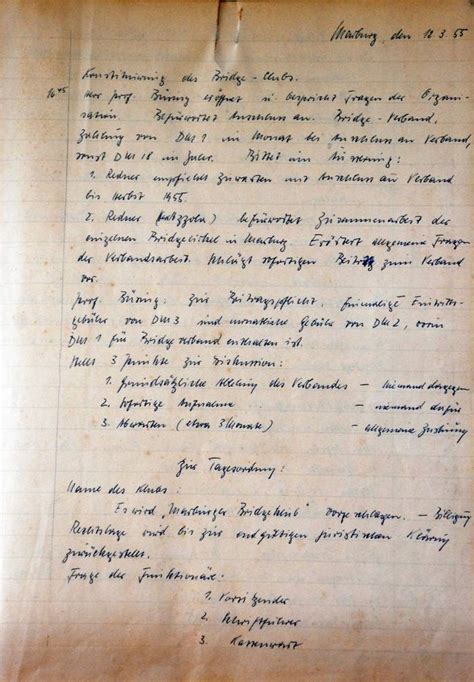 Marburg, den 10.3.55
Konstituierung des Bridge-Clubs.
16⁴⁵ Herr Prof. Büring eröffnet u. bespricht Fragen der Organi-
sation. Befürwortet Anschluss an Bridge-Verband,
Zahlung von DM 1 im Monat bei Anschluss an Verband,
sonst DM 18 im Jahr. Bittet um Äusserung:
1. Redner empfiehlt Zuwarten mit Anschluss an Verband
bis Herbst 1955.
2. Redner ( ) befürwortet Zusammenarbeit der
einzelnen Bridgezirkel in Marburg. Erörtert allgemeine Fragen
der Verbandsarbeit. Schlägt sofortigen Beitritt zum Verband
vor.
Prof. Büring: Zur Beitragspflicht, einmalige Eintritts-
gebühr von DM 3 und monatliche Gebühr von DM 2, worin
DM 1 für Bridgeverband enthalten ist.
Stellt 3 Punkte zur Diskussion:
1. Grundsätzliche Ablehnung des Verbandes — niemand dagegen
2. Sofortige Aufnahme — niemand dafür
3. Abwarten (etwa 3 Monate) — allgemeine Zustimmung
Zur Tagesordnung:
Name des Klubs:
Es wird „Marburger Bridgeklub" vorgeschlagen. — Billigung
Rechtslage wird bis zur endgültigen juristischen Klärung
zurückgestellt.
Frage der Funktionäre:
1. Vorsitzender
2. Schriftführer
3. Kassenwart